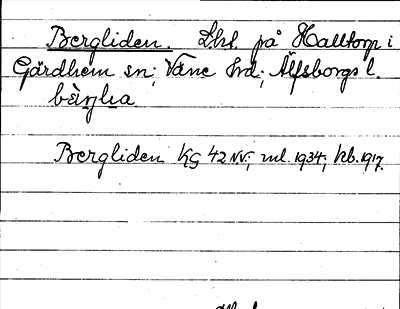 Bergliden. Lht. på Halltorp i
Gärdhem sn; Väne hrd; Älfsborgs l.
Bergliden KG 42 NV; ml. 1934; kb. 1917.